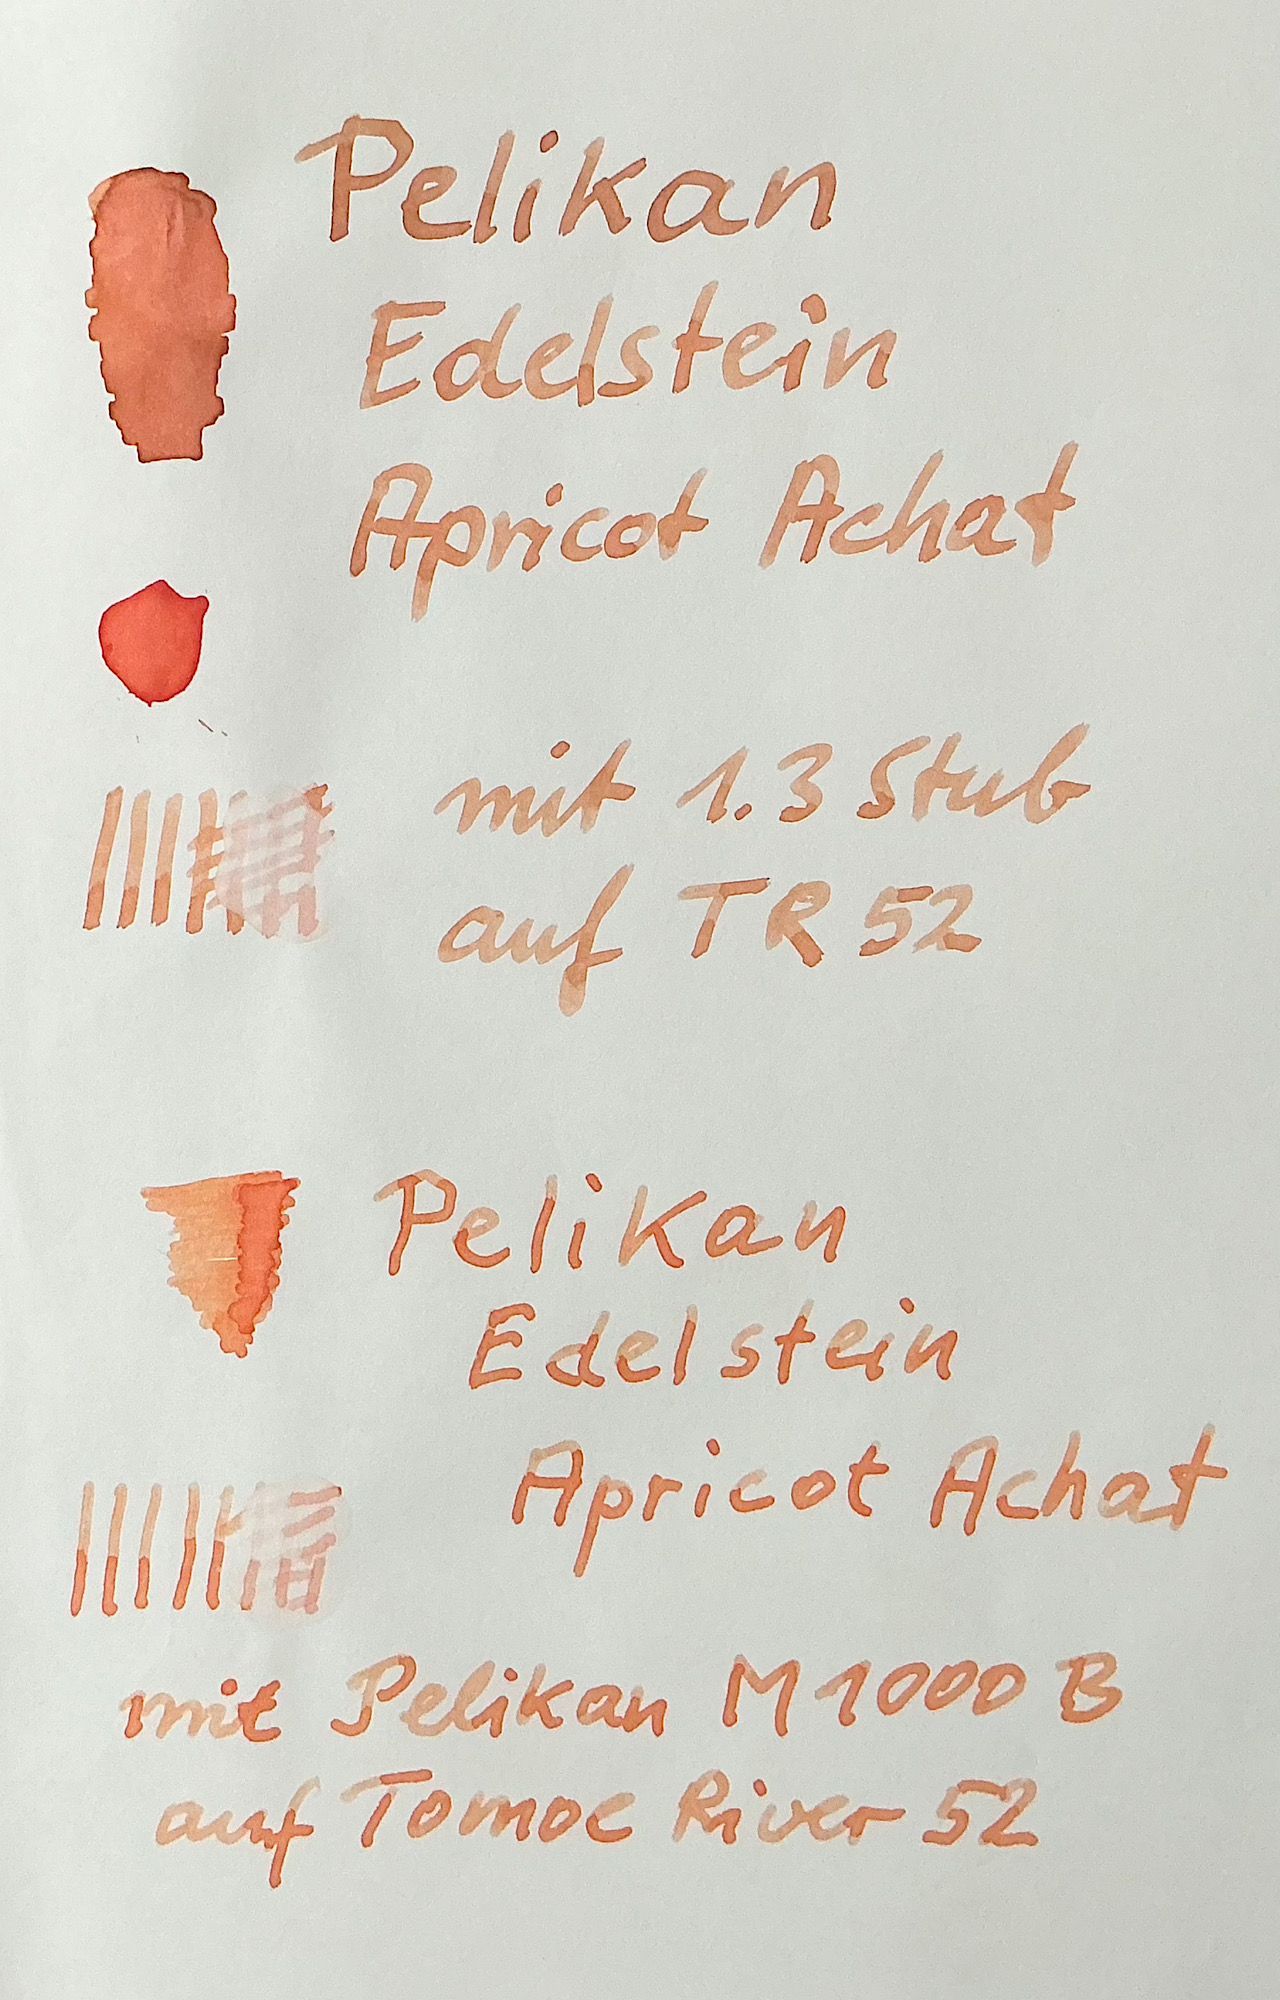 Pelikan
Edelstein
Apricot Achat
mit 1.3 Stub
auf TR 52
Pelikan
Edelstein
Apricot Achat
mit Pelikan M1000 B
auf Tomoe River 52